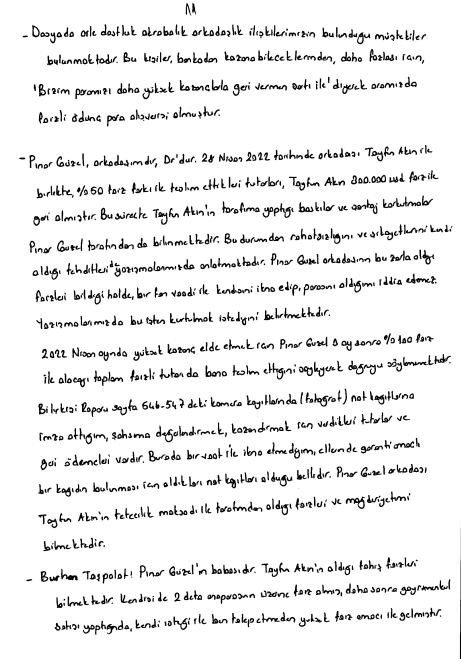 11
- Dosyada aile dostluk akrabalık arkadaşlık ilişkilerimizin bulunduğu müştekiler
bulunmaktadır. Bu kişiler, bankadan kazanabileceklerinden, daha fazlası için,
'Bizim paramızı daha yüksek kazançlarla geri vermen şartı ile' diyerek aramızda
faizli ödünç para alışverişi olmuştur.
- Pınar Güzel, arkadaşımdır, Dr'dur. 28 Nisan 2022 tarihinde arkadaşı Tayfun Akın ile
birlikte, %50 faiz farkı ile teslim ettikleri tutarları, Tayfun Akın 300.000 usd faiz ile
geri almıştır. Bu süreçte Tayfun Akın'ın tarafıma yaptığı baskılar ve şantaj korkutmalar
Pınar Güzel tarafından da bilinmektedir. Bu durumdan rahatsızlığını ve şikayetlerini kendi
aldığı tehditleri de yazışmalarımızda anlatmaktadır. Pınar Güzel arkadaşının bu zorla aldığı
faizleri bildiği halde, bir fon vaadi ile kendisini ikna edip, parasını aldığımı iddia edemez.
Yazışmalarımızda bu işten kurtulmak istediğini belirtmektedir.
2022 Nisan ayında yüksek kazanç elde etmek için Pınar Güzel 8 ay sonra %100 faiz
ile alacağı toplam faizli tutarı da bana teslim ettiğini söyleyerek doğruyu söylememektedir.
Bilirkişi Raporu sayfa 646-547 deki kamera kayıtlarında (fotoğraf) not kağıtlarına
imza attığım, şahsıma değerlendirmek, kazandırmak için verdikleri tutarlar ve
geri ödemeleri vardır. Burada bir vaat ile ikna etmediğim, ellerinde garanti amaçlı
bir kağıdın bulunması için aldıkları not kağıtları olduğu bellidir. Pınar Güzel arkadaşı
Tayfun Akın'ın tefecilik maksadı ile tarafımdan aldığı faizleri ve mağduriyetimi
bilmektedir.
- Burhan Taşpolat: Pınar Güzel'in babasıdır. Tayfun Akın'ın aldığı fahiş faizleri
bilmektedir. Kendisi de 2 defa anaparasının üzerine faiz almış, daha sonra gayrimenkul
satışı yaptığında, kendi isteği ile ben talep etmeden yüksek faiz amacı ile gelmiştir.